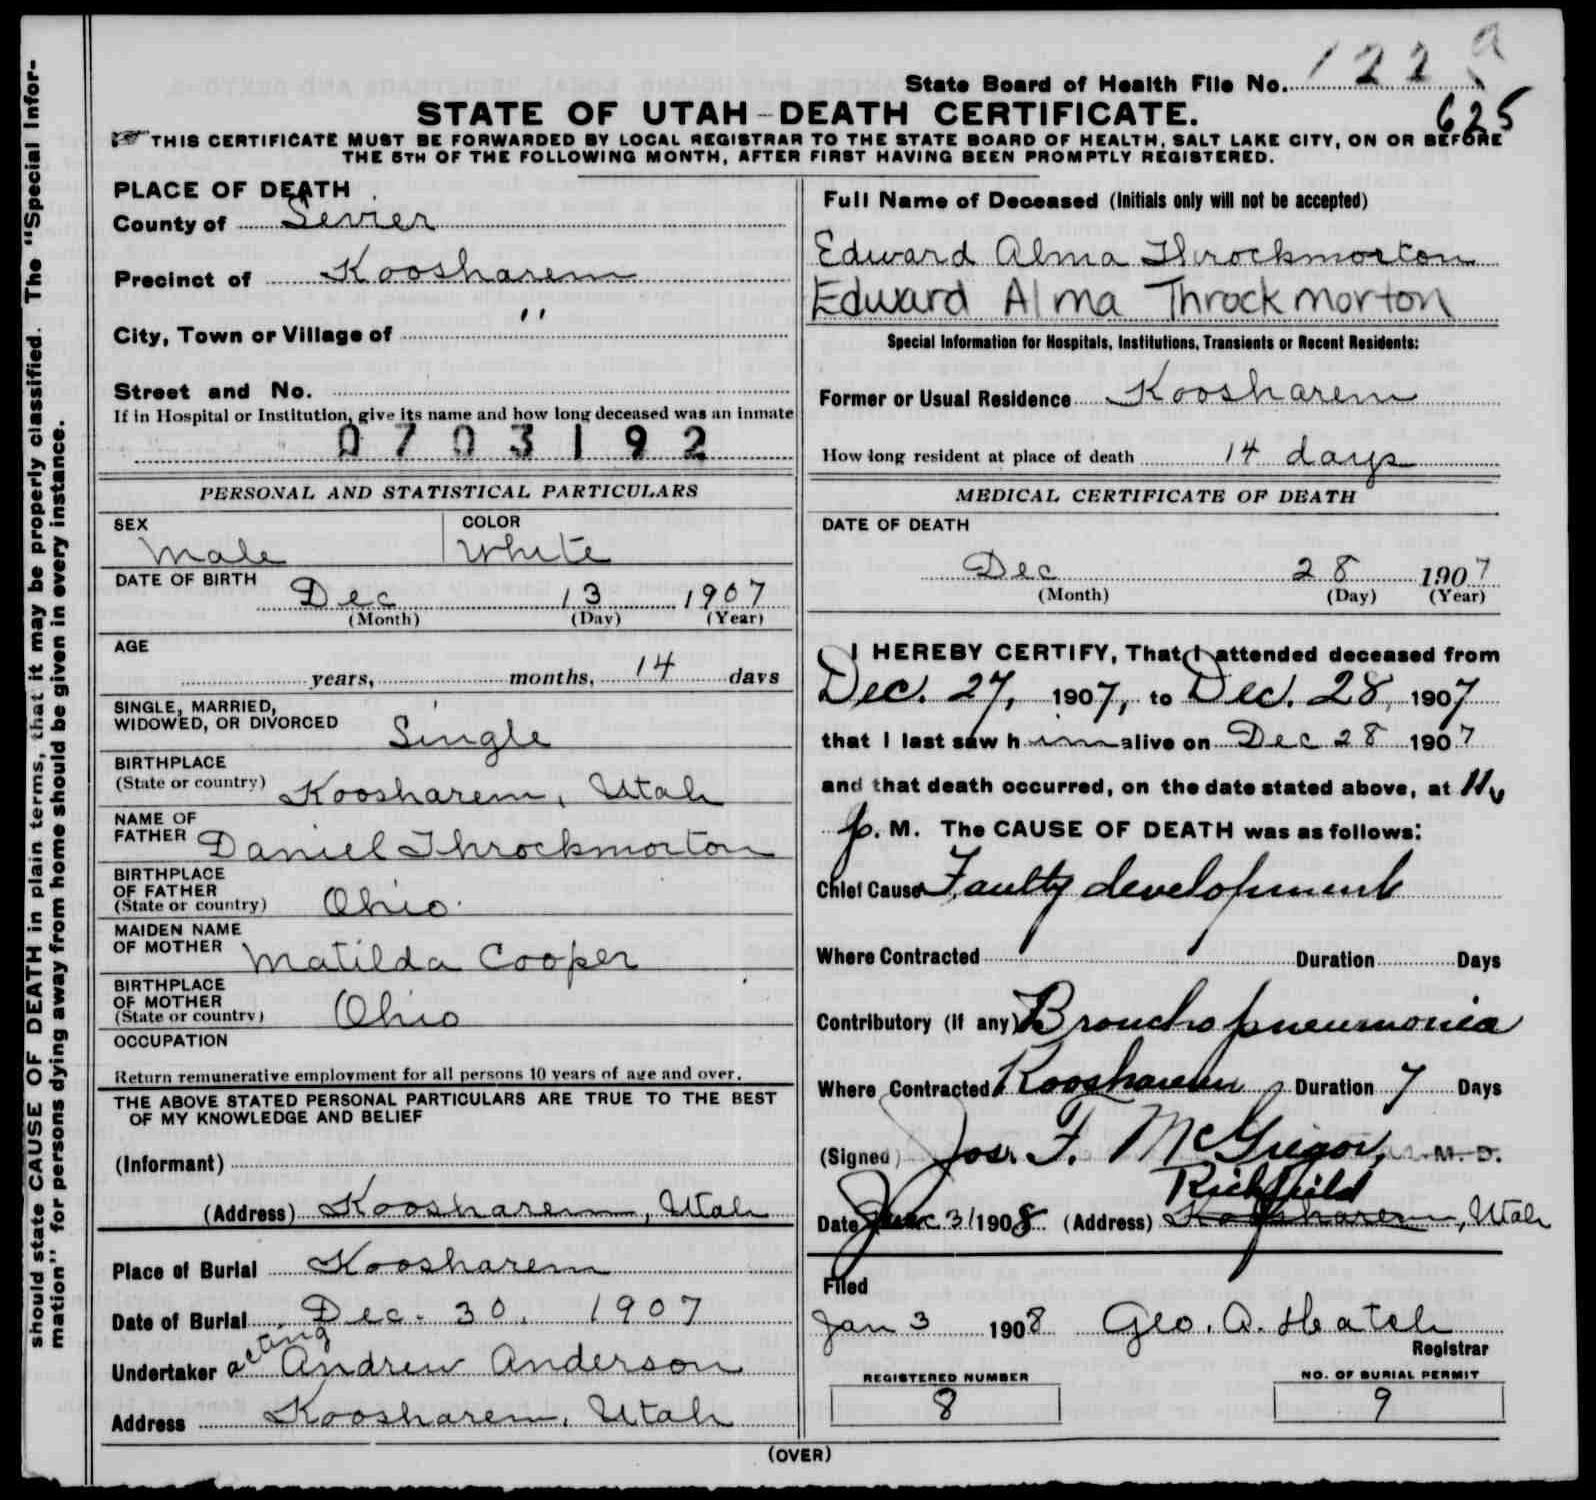 should state CAUSE OF DEATH in plain terms, that it may be properly classified. The "Special Infor-
mation" for persons dying away from home should be given in every instance.
State Board of Health File No. 122 a
STATE OF UTAH-DEATH CERTIFICATE.
625
THIS CERTIFICATE MUST BE FORWARDED BY LOCAL REGISTRAR TO THE STATE BOARD OF HEALTH, SALT LAKE CITY, ON OR BEFORE
THE 5TH OF THE FOLLOWING MONTH, AFTER FIRST HAVING BEEN PROMPTLY REGISTERED.
PLACE OF DEATH
County of Sevier
Precinct of Koosharem
City, Town or Village of "
Street and No.
If in Hospital or Institution, give its name and how long deceased was an inmate
0703192
PERSONAL AND STATISTICAL PARTICULARS
SEX COLOR
Male White
DATE OF BIRTH
Dec 13 1907
(Month) (Day) (Year)
AGE
years, months, 14 days
SINGLE, MARRIED,
WIDOWED, OR DIVORCED Single
BIRTHPLACE
(State or country) Koosharem, Utah
NAME OF
FATHER Daniel Throckmorton
BIRTHPLACE
OF FATHER
(State or country) Ohio
MAIDEN NAME
OF MOTHER Matilda Cooper
BIRTHPLACE
OF MOTHER
(State or country) Ohio
OCCUPATION
Return remunerative employment for all persons 10 years of age and over.
THE ABOVE STATED PERSONAL PARTICULARS ARE TRUE TO THE BEST
OF MY KNOWLEDGE AND BELIEF
(Informant)
(Address) Koosharem, Utah
Place of Burial Koosharem
Date of Burial Dec. 30, 1907
acting
Undertaker Andrew Anderson
Address Koosharem, Utah
Full Name of Deceased (Initials only will not be accepted)
Edward Alma Throckmorton
Edward Alma Throckmorton
Special Information for Hospitals, Institutions, Transients or Recent Residents:
Former or Usual Residence Koosharem
How long resident at place of death 14 days
MEDICAL CERTIFICATE OF DEATH
DATE OF DEATH
Dec 28 1907
(Month) (Day) (Year)
I HEREBY CERTIFY, That I attended deceased from
Dec. 27, 1907, to Dec. 28, 1907
that I last saw h im alive on Dec 28 1907
and that death occurred, on the date stated above, at 11
p. M. The CAUSE OF DEATH was as follows:
Chief Cause Faulty development
Where Contracted Duration Days
Contributory (if any) Broncho pneumonia
Where Contracted Koosharem Duration 7 Days
(Signed) Jos. F. McGregor, M. D.
Richfield
Date 3 1908 (Address) Koosharem, Utah
Filed
Jan 3 1908 Geo. A. Hatch
Registrar
REGISTERED NUMBER NO. OF BURIAL PERMIT
8 9
(OVER)